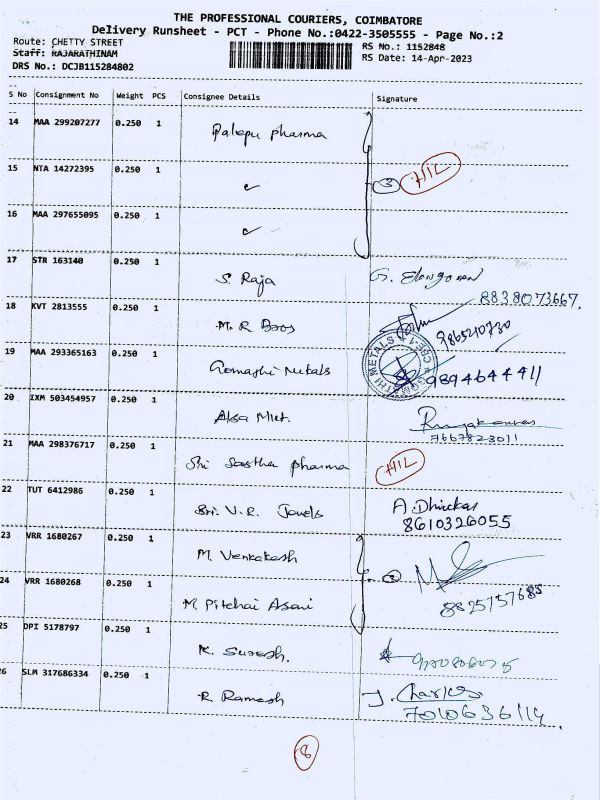 THE PROFESSIONAL COURIERS, COIMBATORE
Delivery Runsheet - PCT - Phone No.:0422-3505555 - Page No.:2
Route: CHETTY STREET
RS No.: 1152848
Staff: RAJARATHINAM
RS Date: 14-Apr-2023
DRS No.: DCJB115284802
S No Consignment No Weight PCS Consignee Details Signature
14 MAA 299207277 0.250 1 pharma
15 NTA 14272395 0.250 1 3 HIL
16 MAA 297655095 0.250 1
17 STR 163140 0.250 1 S. Raja G. Elangovan
8838073667.
18 KVT 2813555 0.250 1 M. R 
19 MAA 293365163 0.250 1 Metals 9894644411
20 IXM 503454957 0.250 1
7667823011
21 MAA 298376717 0.250 1 Sri Sastha pharma HIL
22 TUT 6412986 0.250 1 Sri. V.R. Jewels
8610326055
23 VRR 1680267 0.250 1 M. Venkatesh
24 VRR 1680268 0.250 1 M. Pitchai Asari 2
8825757685
25 DPI 5178797 0.250 1 K. Suresh.
26 SLM 317686334 0.250 1 R Ramesh J. Charles
7010636114
8